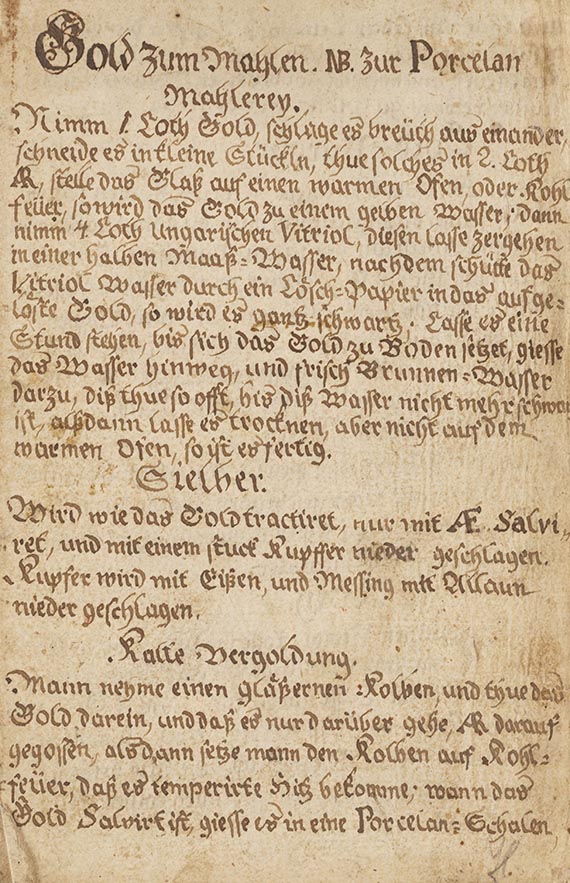 Gold zum Mahlen. NB. zur Porcelan
Mahlerey.
Nimm 1. Loth Gold, schlage es breüch aus einander,
schneide es in kleine Stückln, thue solches in 2. Loth
AR, stelle das Glaß auf einen warmen Ofen, oder Kohl
feüer, so wird das Gold zu einem gelben Wasser; dann
nimm 4 Loth Ungarischen Vitriol, diesen lasse zergehen
in einer halben Maaß-Wasser, nachdem schütte das
Vitriol Wasser durch ein Lösch-Papier in das aufge-
löste Gold, so wird es gantz schwartz. Lasse es eine
Stund stehen, bis sich das Gold zu Boden setzet, giesse
das Wasser hinweg, und frisch Brunnen-Wasser
darzu, diß thue so offt, bis diß Wasser nicht mehr schwartz
ist, alßdann lasse es trocknen, aber nicht auf dem
warmen Ofen, so ist es fertig.
Sielber.
Wird wie das Gold tractiret, nur mit Æ Salvi-
ret, und mit einem stuck Kupffer nieder geschlagen.
Kupfer wird mit Eißen, und Messing mit Allaun
nieder geschlagen.
Kalte Vergoldung.
Mann nehme einen gläßernen Kolben, und thue das
Gold darein, und daß es nur darüber gehe, AR darauf
gegossen, alsdann setze mann den Kolben auf Kohl-
feüer, daß es temperirte Hitz bekomme; wann das
Gold Salvirt ist, giesse es in eine Porcelan-Schalen